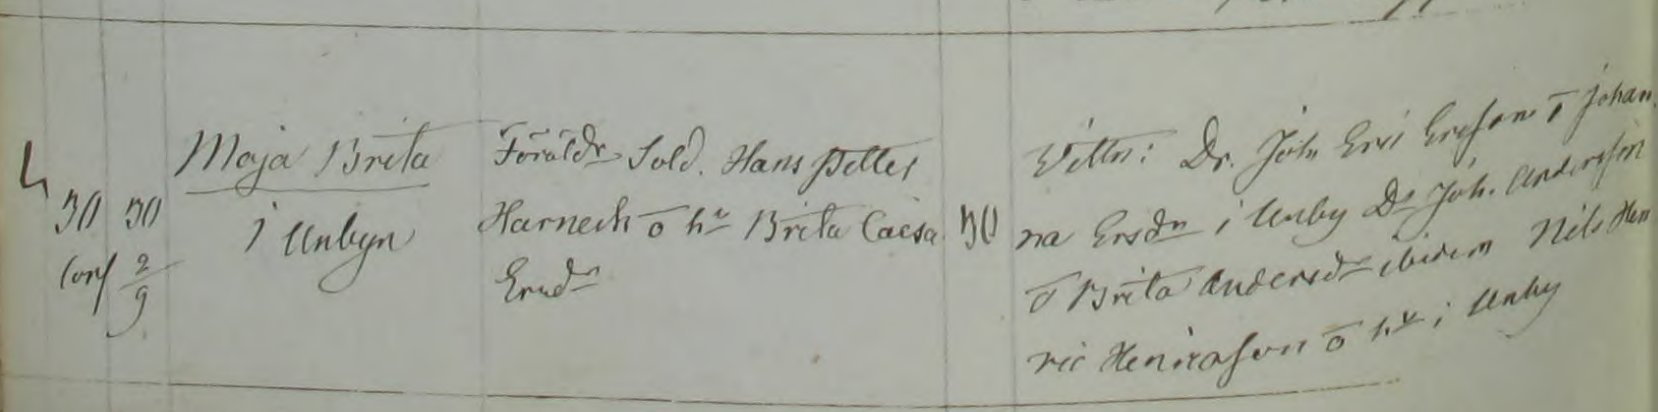 30 30 Maja Brita Föräldr Sold. Hans Petter 30 Vittn: Dr. Joh Eric Ersson o Johan
i Unbyn Harnesk o h Brita Caisa na Ersdr i Unby Dr Joh. Andersson
2/9 Ersdr o Brita Andersdr ibidem Nils Hen
ric Henricsson o h i Unby